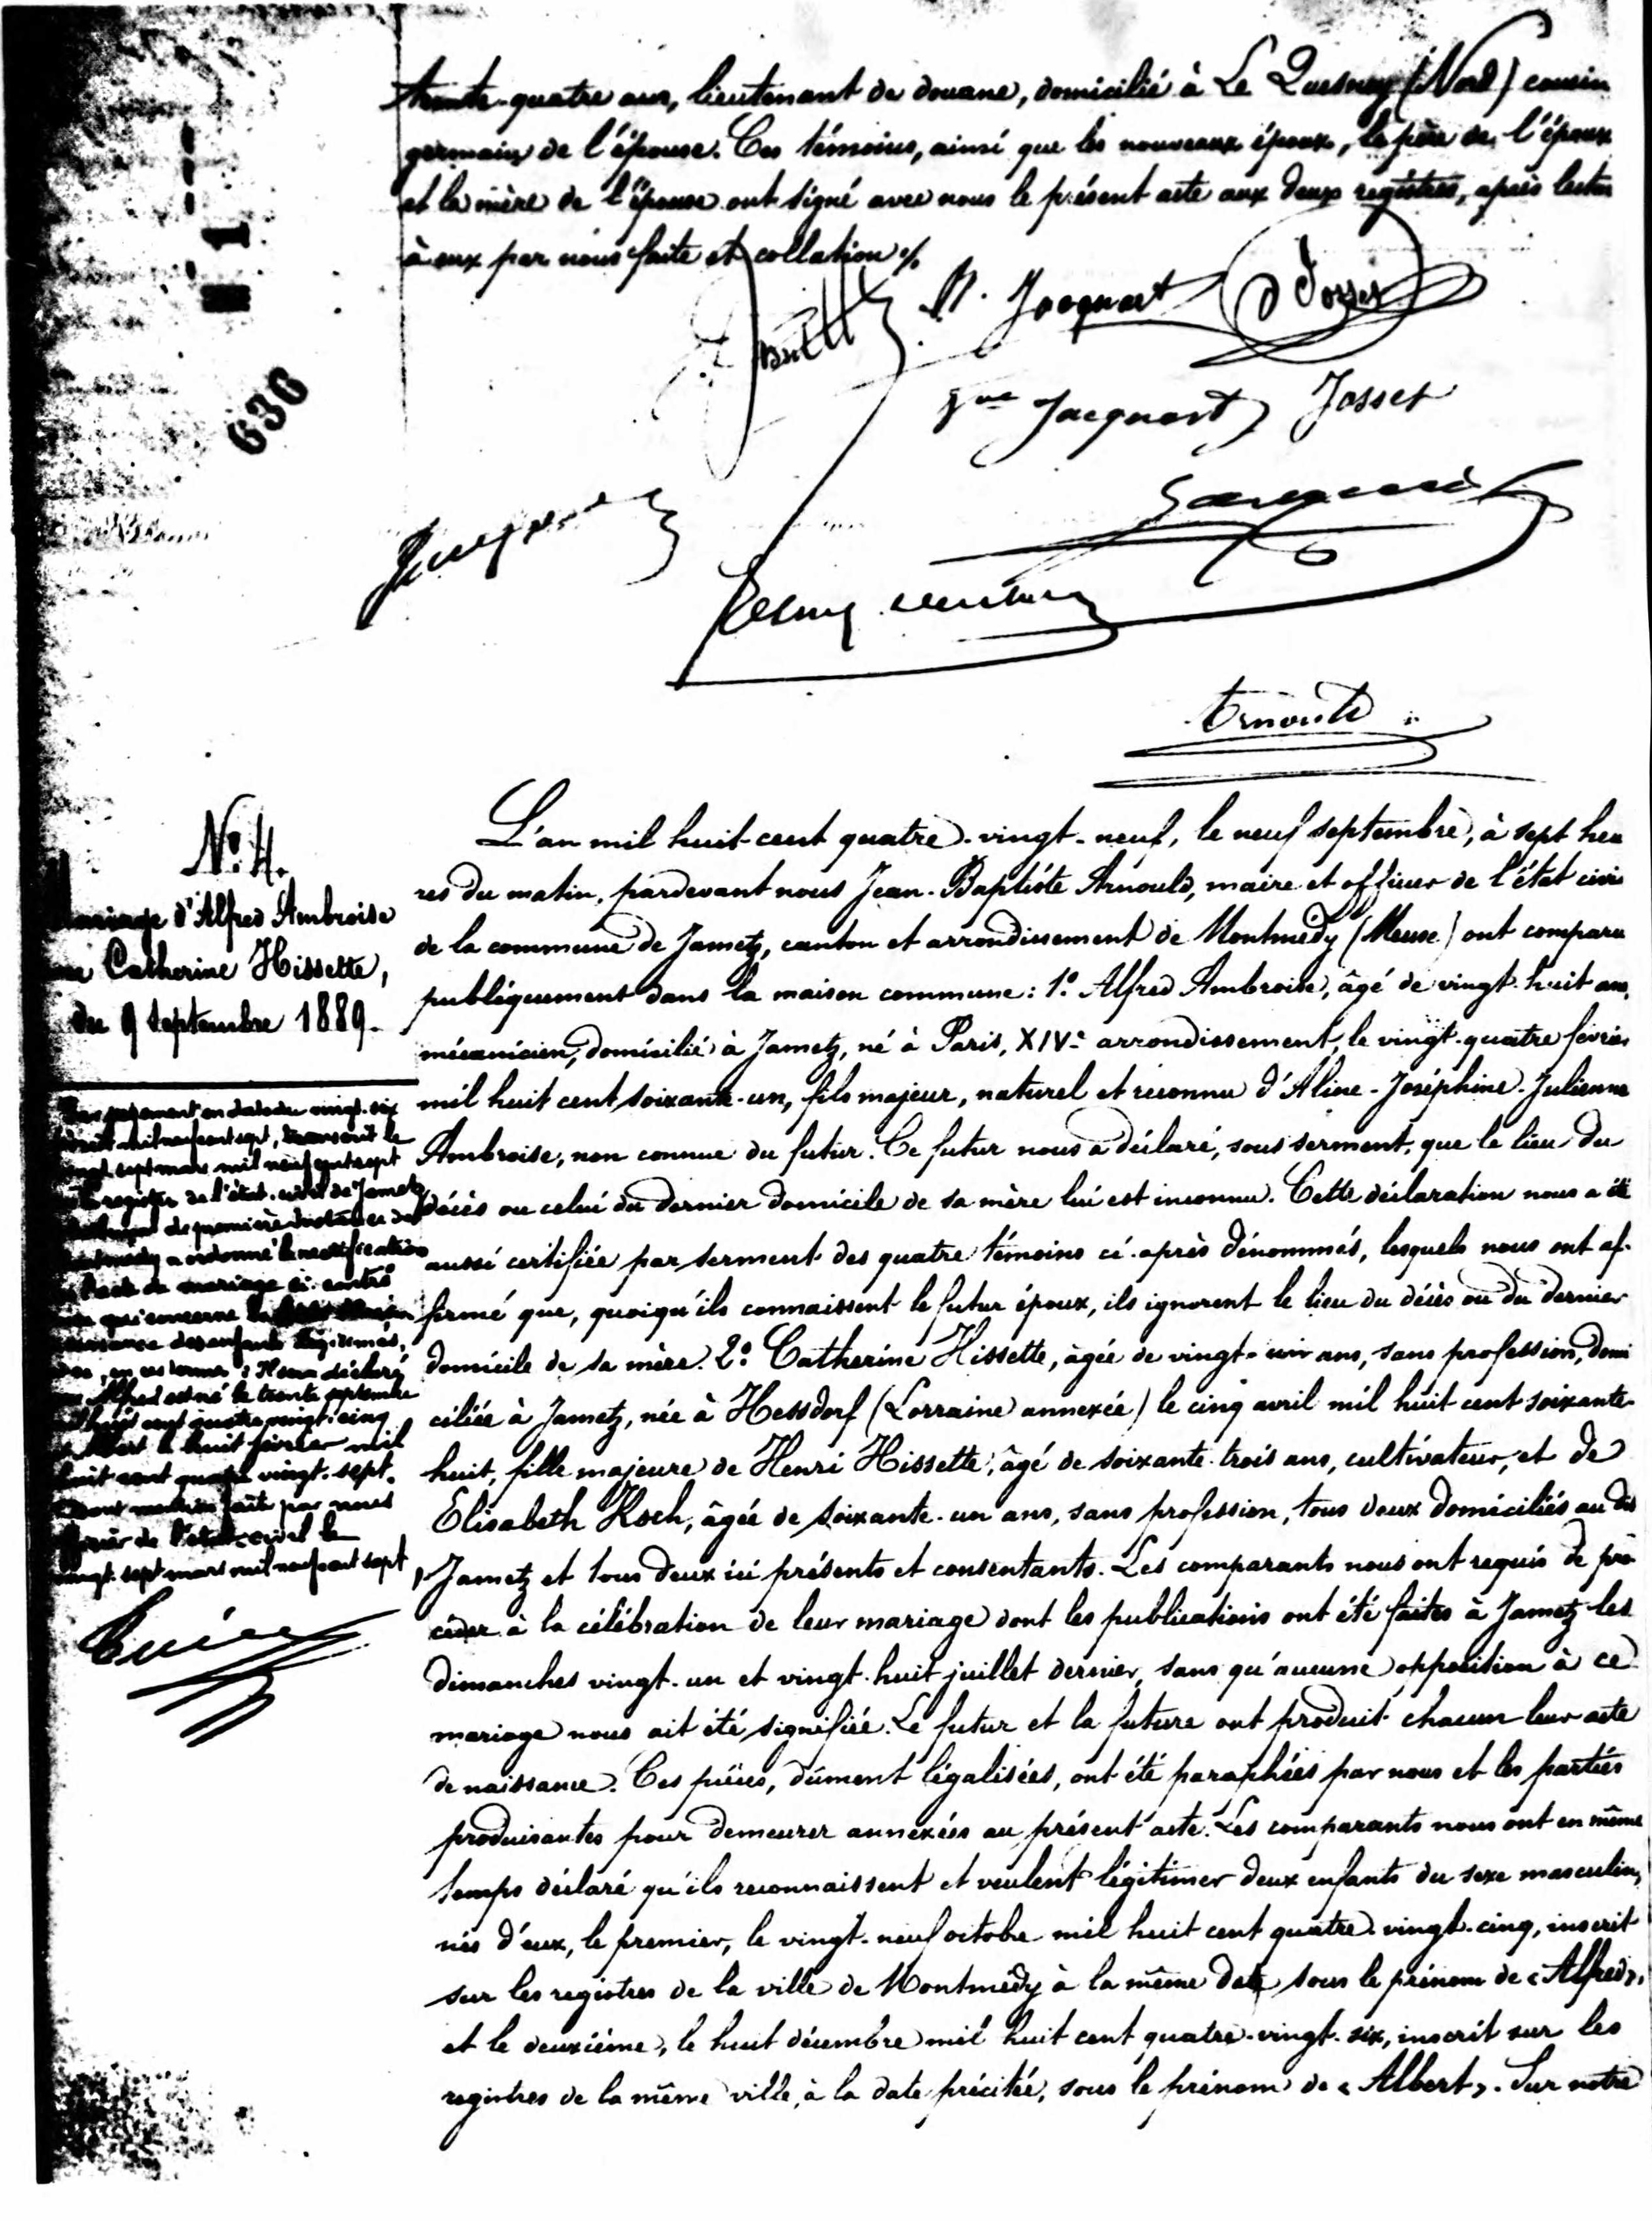 trente-quatre ans, lieutenant de douane, domicilié à Le Quesnoy (Nord) cousin
germain de l'épouse. Ces témoins, ainsi que les nouveaux époux, le père de l'époux
et la mère de l'épouse ont signé avec nous le présent acte aux deux registres, après lecture
à eux par nous faite et collation ./.
Jacquart
Jacquart Josset
Arnould
636
N.º 4.
Mariage d'Alfred Ambroise
Catherine Hissette,
du 9 Septembre 1889.
L'an mil huit cent quatre-vingt-neuf, le neuf septembre, à sept heu
res du matin, pardevant nous Jean-Baptiste Arnould, maire et officier de l'état civil
de la commune de Jametz, canton et arrondissement de Montmédy (Meuse) ont comparu
publiquement dans la maison commune : 1.º Alfred Ambroise, âgé de vingt-huit ans,
mécanicien, domicilié à Jametz, né à Paris, XIV.e arrondissement, le vingt-quatre février
mil huit cent soixante-un, fils majeur, naturel et reconnu d'Aline-Joséphine-Julienne
Ambroise, non connue du futur. Ce futur nous a déclaré, sous serment, que le lieu du
décès ou celui du dernier domicile de sa mère lui est inconnu. Cette déclaration nous a été
aussi certifiée par serment des quatre témoins ci-après dénommés, lesquels nous ont af-
firmé que, quoiqu'ils connaissent le futur époux, ils ignorent le lieu du décès ou du dernier
domicile de sa mère. 2.º Catherine Hissette, âgée de vingt-un ans, sans profession, domi
ciliée à Jametz, née à Hessdorf (Lorraine annexée) le cinq avril mil huit cent soixante-
huit, fille majeure de Henri Hissette, âgé de soixante-trois ans, cultivateur, et de
Elisabeth Koch, âgée de soixante-un ans, sans profession, tous deux domiciliés au dit
Jametz et tous deux ici présents et consentants. Les comparants nous ont requis de pro
céder à la célébration de leur mariage dont les publications ont été faites à Jametz les
dimanches vingt-un et vingt-huit juillet dernier, sans qu'aucune opposition à ce
mariage nous ait été signifiée. Le futur et la future ont produit chacun leur acte
de naissance. Ces pièces, dûment légalisées, ont été paraphées par nous et les parties
produisantes pour demeurer annexées au présent acte. Les comparants nous ont en même
temps déclaré qu'ils reconnaissent et veulent légitimer deux enfants du sexe masculin,
nés d'eux, le premier, le vingt-neuf octobre mil huit cent quatre-vingt-cinq, inscrit
sur les registres de la ville de Montmédy à la même date sous le prénom de « Alfred »,
et le deuxième, le huit décembre mil huit cent quatre-vingt-six, inscrit sur les
registres de la même ville, à la date précitée, sous le prénom de « Albert ». Sur notre
Par jugement en date du vingt-six
mil neuf cent sept, transcrit le
vingt-sept mars mil neuf cent sept
registre de l'état-civil de Jametz
de première instance de
Montmédy a ordonné la rectification
l'acte de mariage ci-contre
qui concerne la
naissance des enfants légitimés,
en ces termes : Il sera déclaré
Alfred est né le trente septembre
huit cent quatre vingt-cinq
Albert le huit février mil
huit cent quatre vingt-sept.
Dont mention faite par nous
officier de l'état-civil le
vingt-sept mars mil neuf cent sept